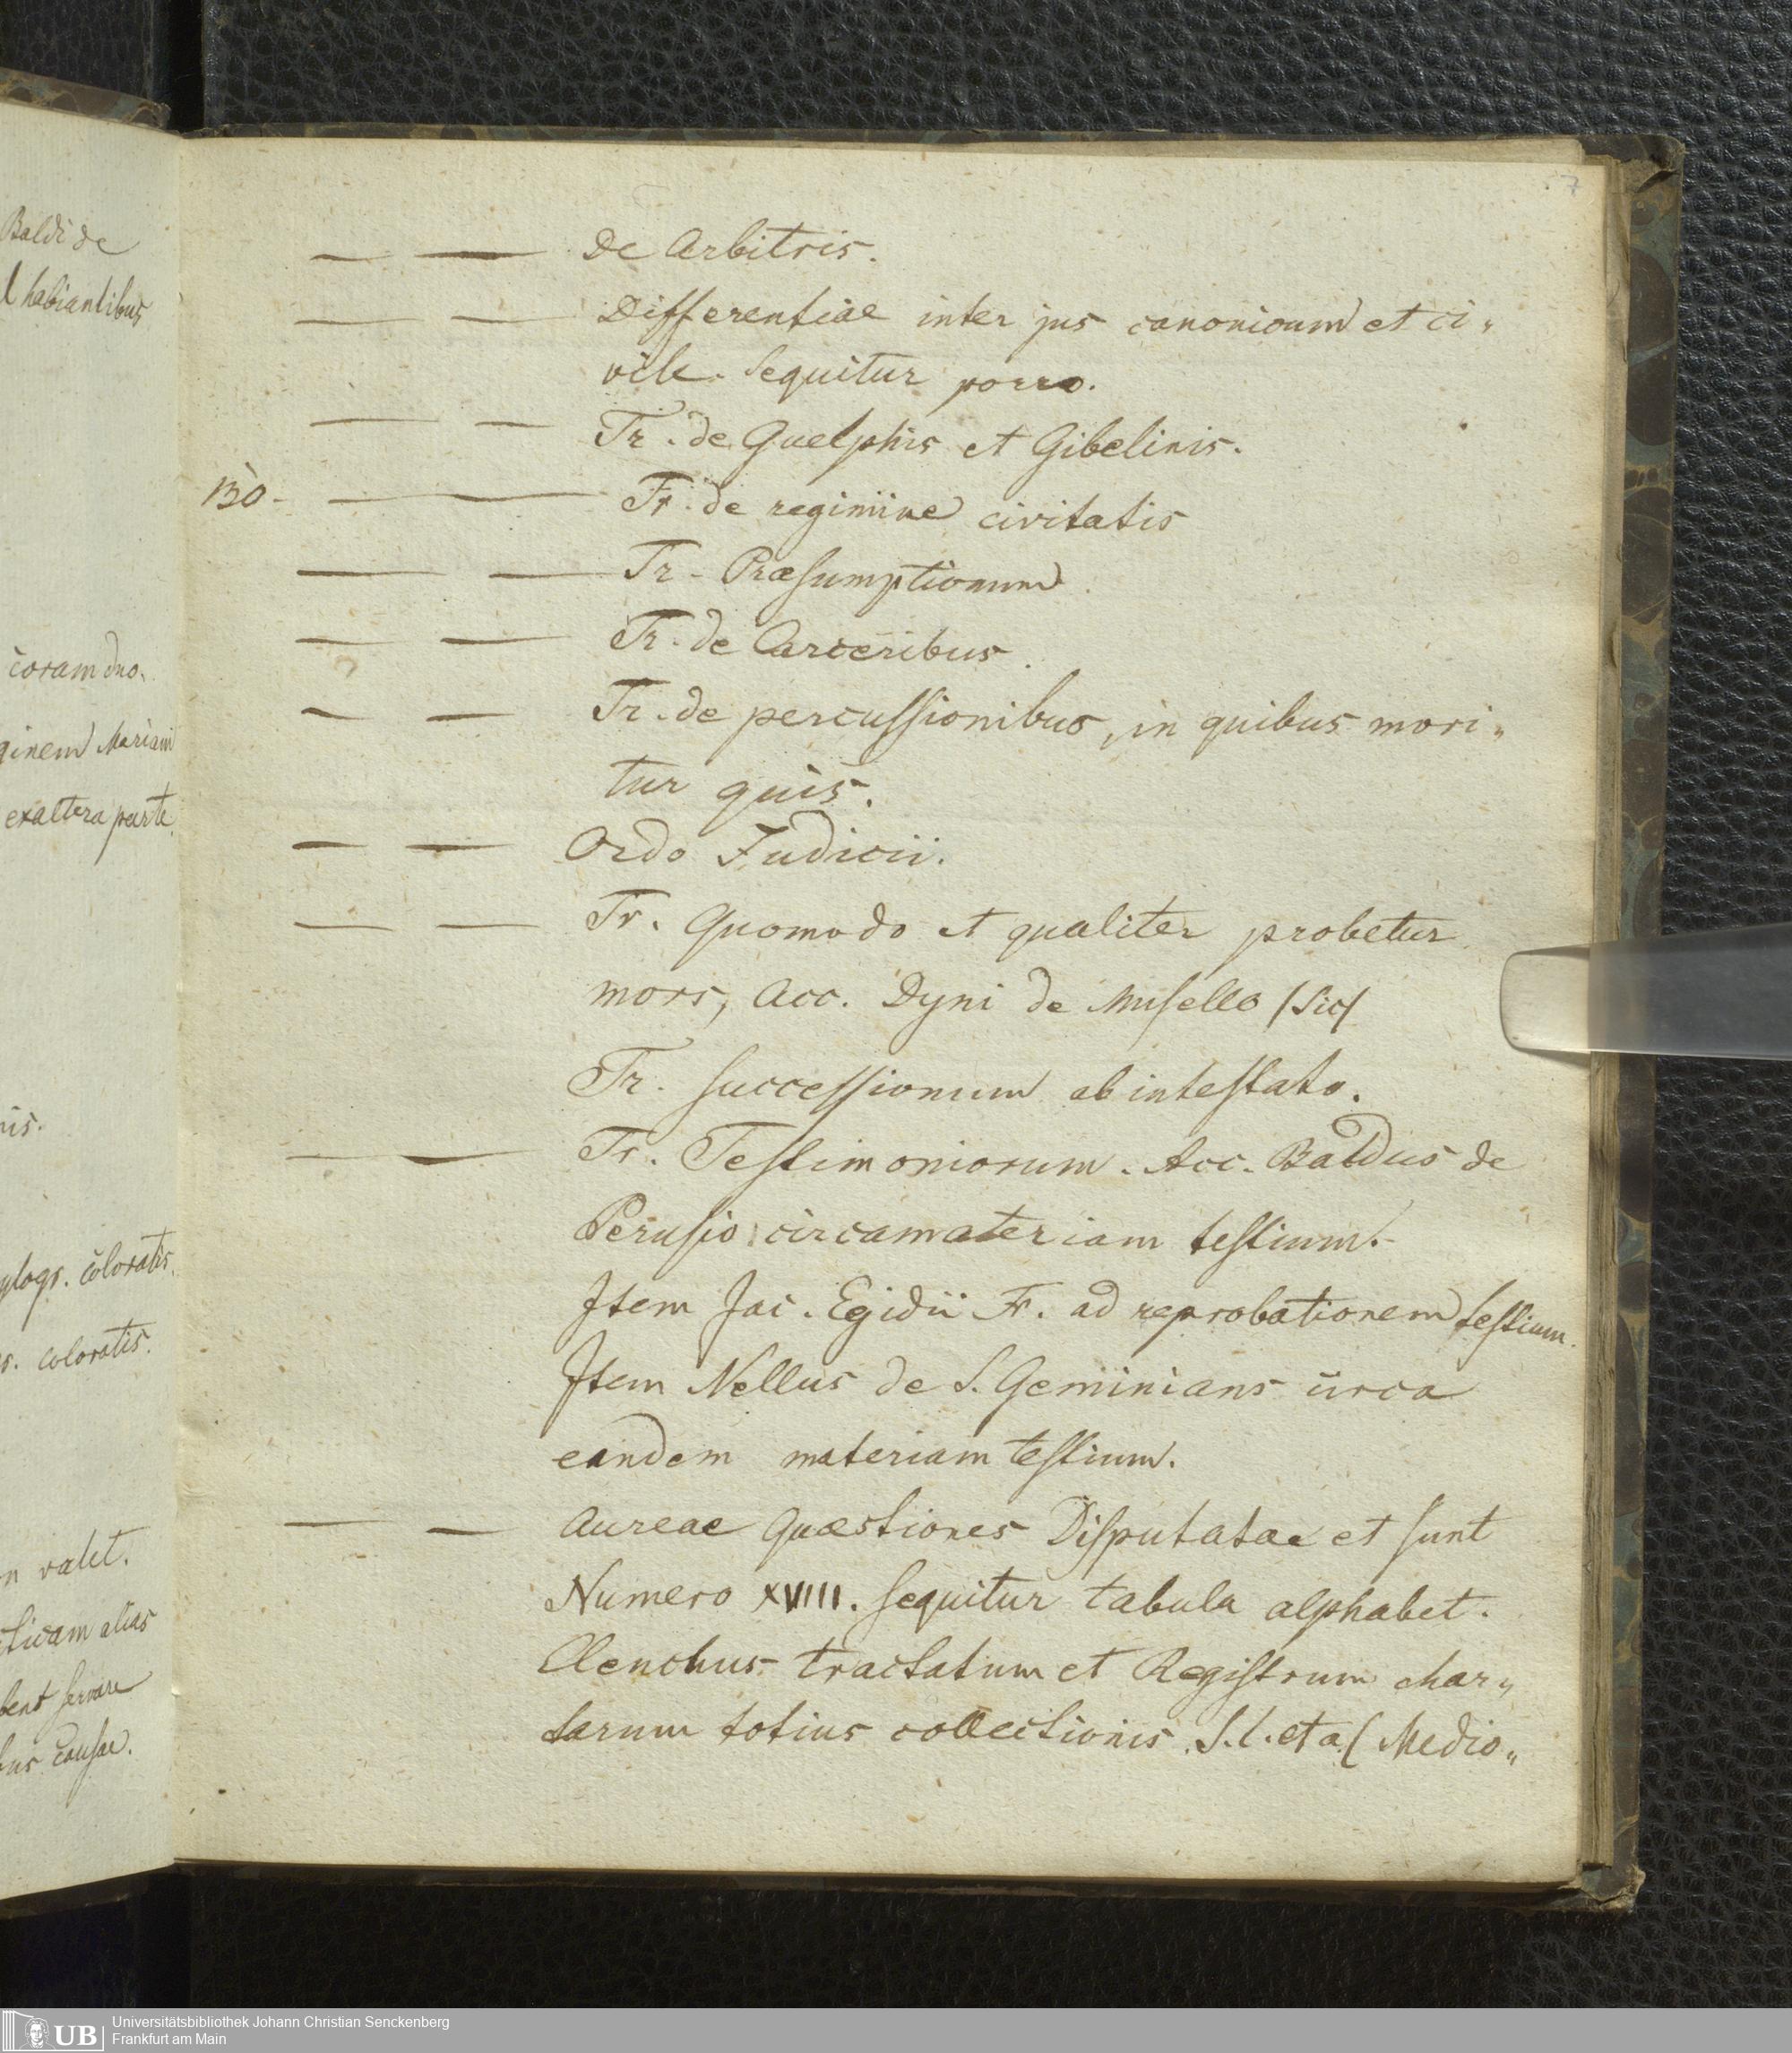 7
Baldi de
habiantibus
coram duo.
ginem Mariam
ex altera parte.
nis.
ylogr. coloratis.
s. coloratis.
n valet.
sticam alias
bent servare
bus causae.
— — De Arbitris.
— — Differentiae inter jus canonicum et ci„
vile. Sequitur porro.
— — Tr. de Guelphis et Gibelinis.
130 - — — Tr. de regimine civitatis
— — Tr. Praesumptionum.
— — Tr. de Carceribus.
— — Tr. de percussionibus, in quibus mori„
tur quis.
— — Ordo Judicii.
— — Tr. Quomodo et qualiter probetur
mors, Acc. Dyni de Musello /Sic/
Tr. successionum ab intestato.
— — Tr. Testimoniorum. Acc. Baldus de
Perusio circa materiam testium.
Item Jac. Egidii Tr. ad reprobationem testium.
Item Nellus de S. Geminians circa
eandem materiam testium.
— — Aureae Quaestiones Disputatae et sunt
Numero XVIIII. sequitur tabula alphabet.
Elenchus tractatum et Registrum char„
tarum totius collectionis. S. l. et a. ( Medio„
UB
Universitätsbibliothek Johann Christian Senckenberg
Frankfurt am Main